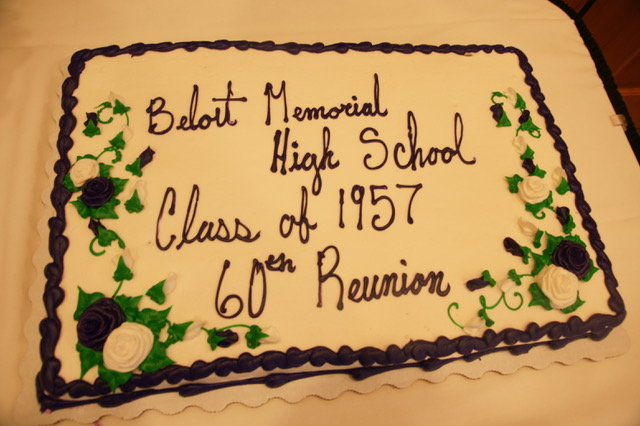 Beloit Memorial
High School
Class of 1957
60th Reunion